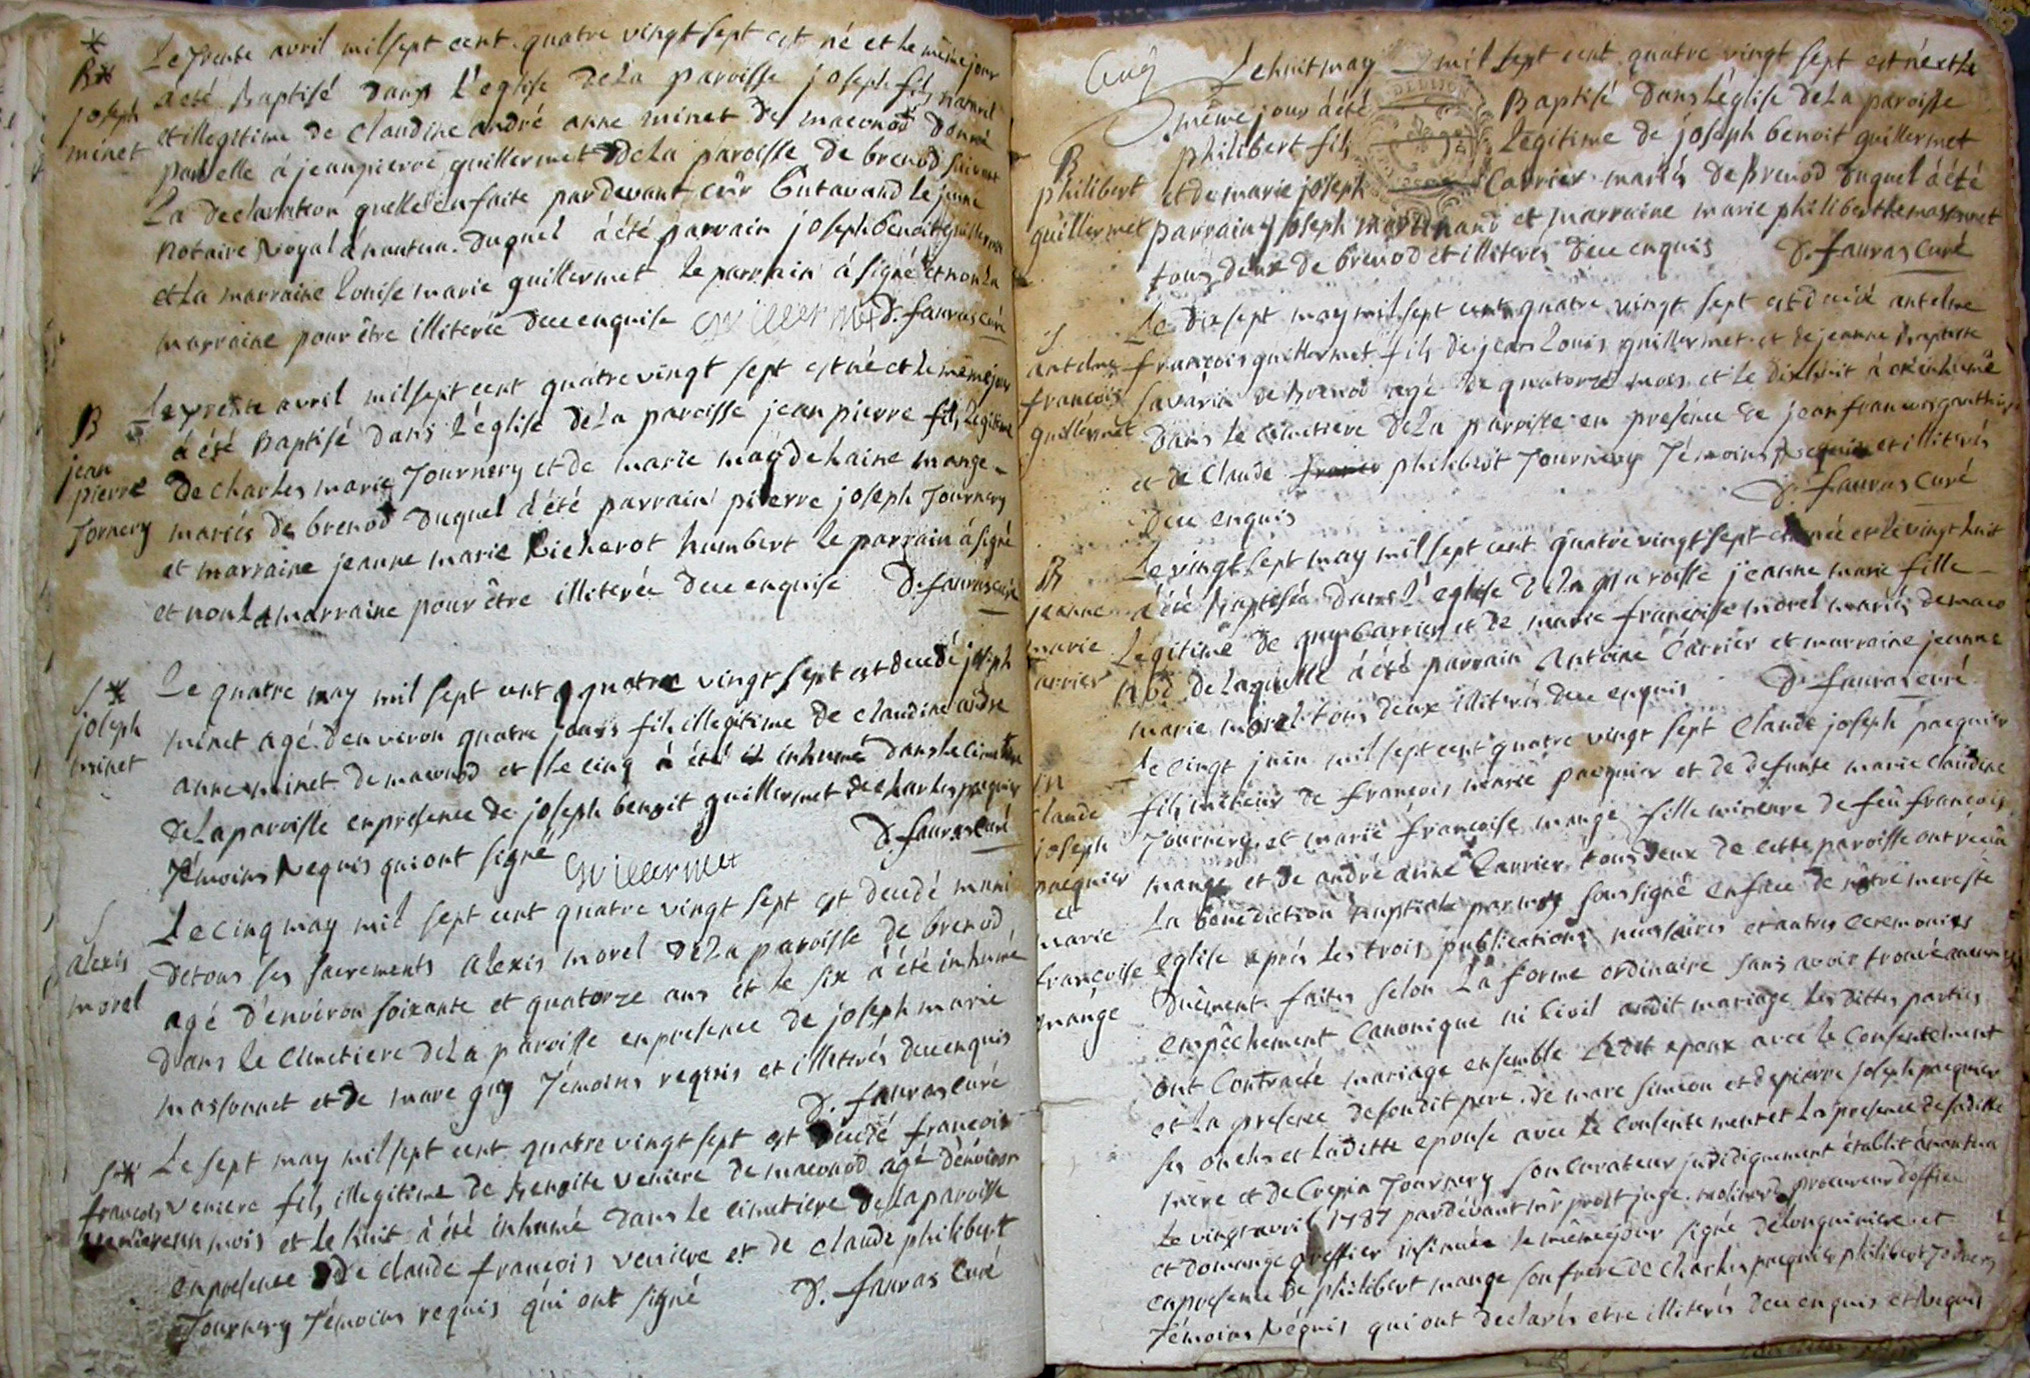 *
B*
joseph
minet
Le trente avril mil sept cent quatre vingt sept est né et le même jour
a été Baptisé dans l'église de la paroisse joseph fils naturel
et illegitime de claudine andré anne minet de maconod donné
par elle à jean pierre guillermet de la paroisse de brenod suivant
La declaration quelle en a faite pardevant
Notaire Royal à nantua. duquel à été parrain joseph benoit guillermet
et la marraine louise marie guillermet le parrain à signé et non la
marraine pour être illiterée de ce enquise guillermet D. fauras curé
B
jean
pierre
Tornery
Le trente avril mil sept cent quatre vingt sept est né et le même jour
à été Baptisé dans l'église de la paroisse jean pierre fils legitime
de charles marie Tournery et de marie magdelaine mange
mariés de brenod duquel à été parrain pierre joseph Tournery
et marraine jeanne marie Richerot humbert le parrain à signé
et non la marraine pour être illiterée de ce enquise D. fauras curé
S*
joseph
minet
Le quatre may mil sept cent quatre vingt sept est decedé joseph
minet agé d'environ quatre jours fils illegitime de claudine andré
anne minet de maconod et le cinq à été inhumé dans le cimetiere
de la paroisse en presence de joseph benoit guillermet de charles pacquier
Témoins Requis qui ont signé guillermet D. fauras curé
S
alexis
morel
Le cinq may mil sept cent quatre vingt sept est decedé muni
de tous ses sacrements alexis morel de la paroisse de brenod
agé d'environ soixante et quatorze ans et le six à été inhumé
dans le cimetiere de la paroisse en presence de joseph marie
massonnet et de marc guy Témoins requis et illiterés de ce enquis
D. fauras curé
S*
françois
veniere
Le sept may mil sept cent quatre vingt sept est decedé françois
veniere fils illegitime de benoite veniere de maconod agé d'environ
un mois et le huit à été inhumé dans le cimetiere de la paroisse
en presence de claude françois veniere et de claude philibert
Tournery Témoins requis qui ont signé D. fauras curé
Cinq
DE DIJON
B
philibert
guillermet
Le huit may mil sept cent quatre vingt sept est né et le
même jour à été Baptisé dans l'église de la paroisse
philibert fils Legitime de joseph benoit guillermet
et de marie joseph Carrier mariés de brenod duquel à été
parrain joseph martinand et marraine marie philiberthe massonnet
tous deux de brenod et illiterés de ce enquis D. fauras curé
S
antelme
françois
guillermet
Le dix sept may mil sept cent quatre vingt sept est decedé antelme
françois guillermet fils de jean louis guillermet et de jeanne baptiste
savarin de brenod agé de quatorze mois et le dixhuit à été inhumé
dans le cimetiere de la paroisse en presence de jean françois gauthier
et de claude philibert Tournery Témoins Requis et illiterés
de ce enquis D. fauras curé
B
jeanne
marie
carrier
Le vingt sept may mil sept cent quatre vingt sept est née et le vingt huit
à été baptisée dans l'église de la paroisse jeanne marie fille
Legitime de guy Carrier et de marie françoise morel mariés de maco
nod de laquelle à été parrain antoine Carrier et marraine jeanne
marie morel tous deux illiterés de ce enquis D. fauras curé
m
claude
joseph
pacquier
et
marie
françoise
mange
Le vingt juin mil sept cent quatre vingt sept claude joseph pacquier
fils mineur de françois marie pacquier et de defunte marie claudine
Tournery et marie françoise mange fille mineure de feû françois
mange et de andré anne Carrier tous deux de cette paroisse ont reçu
la bénédiction nuptiale par moy soussigné en face de nôtre mere ste
eglise après les trois publications necessaires et autres ceremonies
duement faites selon la forme ordinaire sans avoir trouvé aucun
empêchement canonique ni civil audit mariage les dittes parties
ont contracté mariage ensemble ledit epoux avec le consentement
et la presence de son dit pere de marc simeon et de pierre joseph pacquier
ses oncles et laditte epouse avec le consentement et la presence de sa ditte
mere et de Crepin Tournery son curateur juridiquement établit à nantua
Le vingt avril 1787 pardevant prost juge procureur d'office
et domange greffier insinuée le même jour signé delonguiniere et
en presence de philibert mange son frere de charles pacquier philibert Tournery
Témoins Requis qui ont declarés etre illiterés de ce enquis et Requis